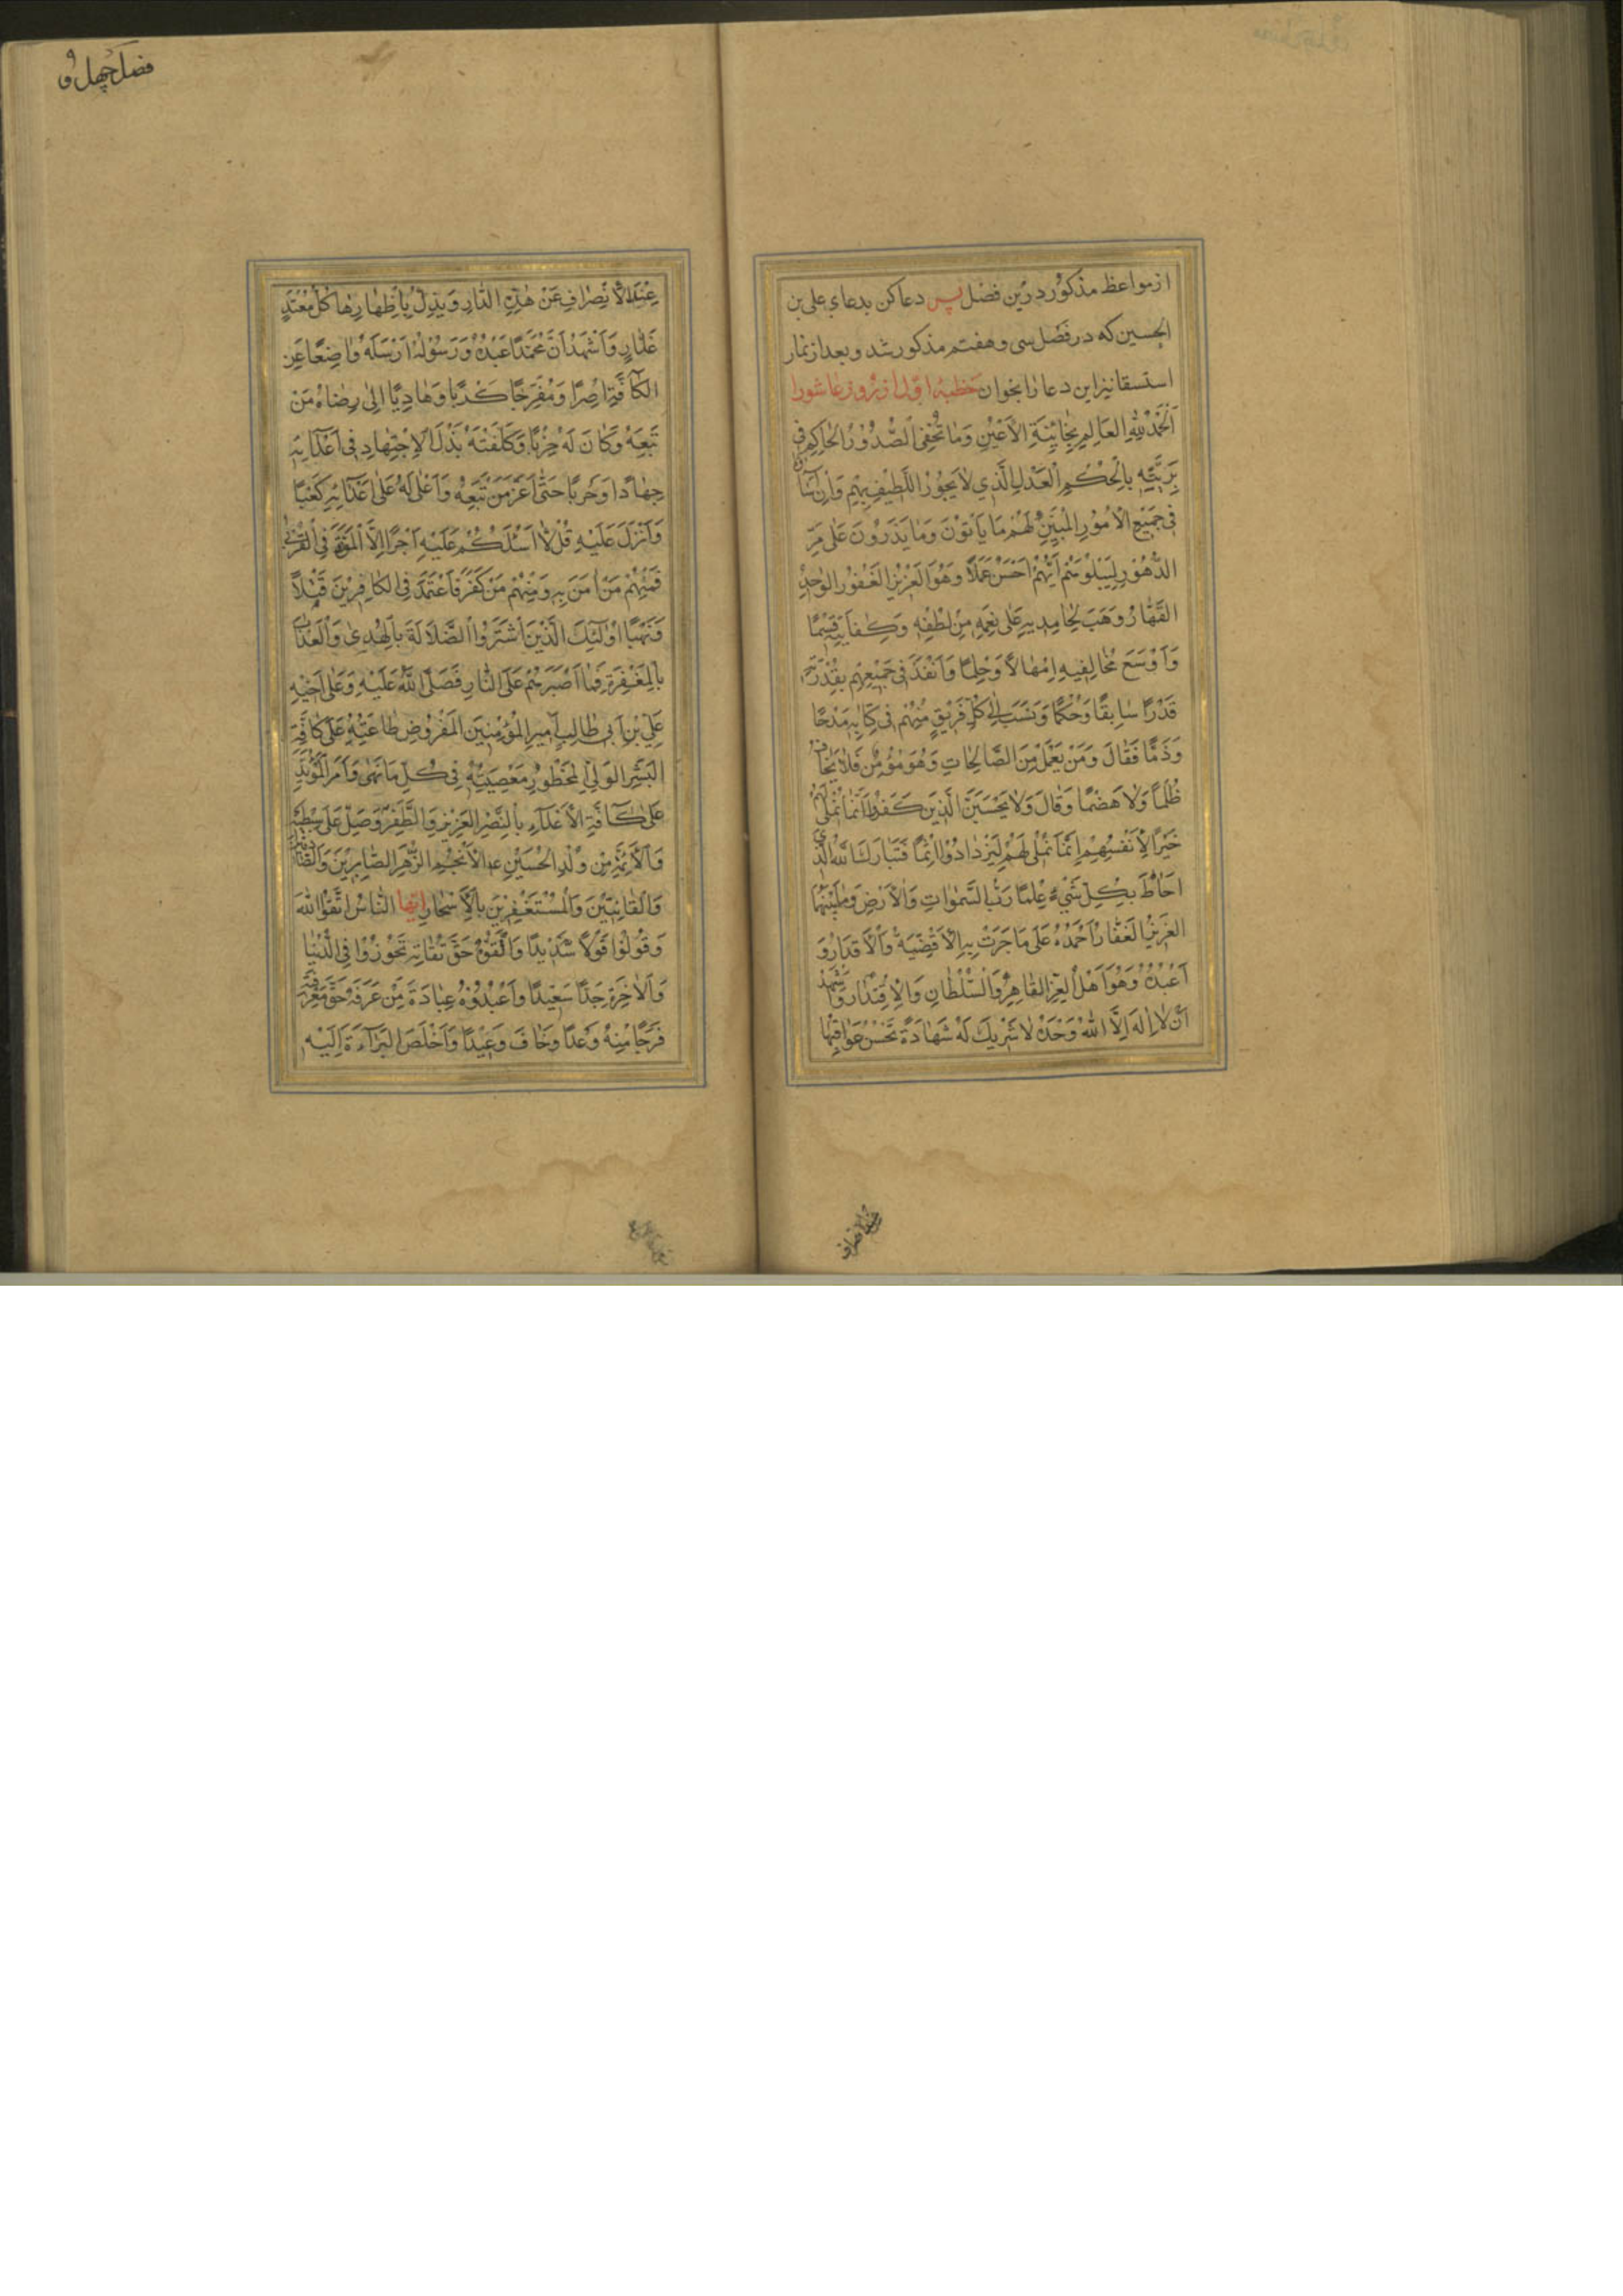 از مواعظ مذکور درین فصل پس دعا کن بدعاي علی بن
الحسین که در فصل سی و هفتم مذکور شد و بعد از نماز
استسقا نیز این دعا را بخوان خطبهٔ اول از روز عاشورا
اَلْحَمْدُ لِلّٰهِ العَالِمِ بِخَائِنَةِ الاَعْيُنِ وَمَا تُخْفِى الصُّدُوْرُ الحَاكِمِ فِى
بَرِيَّتِهِ بِالْحُكْمِ الْعَدْلِ الَّذِي لَا يَجُوْرُ اللَّطِيْفِ بِهِمْ وَاِنْ
فِى جَمِيْعِ الْاُمُوْرِ الْمُبَيِّنِ لَهُمْ مَا يَأْتُوْنَ وَمَا يَذَرُوْنَ عَلٰى مَرِّ
الدُّهُوْرِ لِيَبْلُوَهُمْ اَيُّهُمْ اَحْسَنُ عَمَلًا وَهُوَ الْعَزِيْزُ الْغَفُوْرُ الْوَاحِدُ
القَهَّارُ وَهَبَ لِحَامِدِيهِ عَلٰى نِعَمِهِ مِنْ لُطْفِهِ وَكِفَايَتِهِ قِسْمًا
وَاَوْسَعَ مُخَالِفِيهِ اِمْهَالًا وَحِلْمًا وَاَنْفَذَ فِى جَمِيْعِهِمْ بِقُدْرَتِهِ
قَدَرًا سَابِقًا وَحُكْمًا وَنَسَبَ اِلٰى كُلِّ فَرِيْقٍ مِنْهُمْ فِى كِتَابِهِ مَدْحًا
وَذَمًّا فَقَالَ وَمَنْ يَعْمَلْ مِنَ الصَّالِحَاتِ وَهُوَ مُؤْمِنٌ فَلَا يَخَافُ
ظُلْمًا وَلَا هَضْمًا وَقَالَ وَلَا يَحْسَبَنَّ الَّذِينَ كَفَرُوْا اَنَّمَا نُمْلِى لَهُمْ
خَيْرًا لِاَنْفُسِهِمْ اِنَّمَا نُمْلِى لَهُمْ لِيَزْدَادُوْا اِثْمًا فَتَبَارَكَ اللّٰهُ الَّذِي
اَحَاطَ بِكُلِّ شَيْءٍ عِلْمًا رَبُّ السَّمٰوَاتِ وَالْاَرْضِ وَمَا بَيْنَهُمَا
العَزِيْزُ الْغَفَّارُ اَحْمَدُهُ عَلٰى مَا جَرَتْ بِهِ الْاَقْضِيَةُ وَالْاَقْدَارُ وَ
اَعْبُدُهُ وَهُوَ اَهْلُ الْعِزِّ القَاهِرِ وَالسُّلْطَانِ وَالْاِقْتِدَارِ وَاَشْهَدُ
اَنْ لَا اِلٰهَ اِلَّا اللّٰهُ وَحْدَهُ لَا شَرِيْكَ لَهُ شَهَادَةً تَحْسُنُ عَوَاقِبُهَا
فصل چهل و
عِنْدَ الْاِنْصِرَافِ عَنْ هٰذِهِ الدَّارِ وَيَذِلُّ بِاِظْهَارِهَا كُلُّ مُعْتَدٍ
غَدَّارٍ وَاَشْهَدُ اَنَّ مُحَمَّدًا عَبْدُهُ وَرَسُوْلُهُ اَرْسَلَهُ وَاضِعًا عَنِ
الكَافَّةِ اِصْرًا وَمُفَرِّجًا كَرْبًا وَهَادِيًا اِلٰى رِضَاهُ مَنْ
تَبِعَهُ وَكَانَ لَهُ حِزْبًا وَكَلَّفَتَهُ بَذْلَ الْاِجْتِهَادِ فِى اَعْدَائِهِ
جِهَادًا وَحَرْبًا حَتّٰى اَعَزَّ مَنْ تَبِعَهُ وَاَعْلٰى لَهُ عَلٰى اَعْدَائِهِ كَعْبًا
وَاَنْزَلَ عَلَيْهِ قُلْ لَا اَسْئَلُكُمْ عَلَيْهِ اَجْرًا اِلَّا الْمَوَدَّةَ فِى الْقُرْبٰى
فَمِنْهُمْ مَنْ اٰمَنَ بِهِ وَمِنْهُمْ مَنْ كَفَرَ فَاَعْتَمَدَ فِى الكَافِرِيْنَ قَتْلًا
وَنَهْبًا اُولٰئِكَ الَّذِيْنَ اشْتَرَوُا الضَّلَالَةَ بِالْهُدٰى وَالْعَذَابَ
بِالْمَغْفِرَةِ فَمَا اَصْبَرَهُمْ عَلَى النَّارِ فَصَلَّى اللّٰهُ عَلَيْهِ وَعَلٰى اَخِيْهِ
عَلِيِّ بْنِ اَبِى طَالِبٍ اَمِيْرِ الْمُؤْمِنِيْنَ الْمَفْرُوْضِ طَاعَتُهُ عَلٰى كَافَّةِ
البَشَرِ الْوَلِىِّ الْمَحْظُوْرِ مَعْصِيَتُهُ فِى كُلِّ مَا نَهٰى وَاَمَرَ الْمُؤَيَّدِ
عَلٰى كَافَّةِ الْاَعْدَاءِ بِالنَّصْرِ الْعَزِيْزِ وَالظَّفَرِ وَصَلِّ عَلٰى سِبْطَيْهِ
وَالْاَئِمَّةِ مِنْ وُلْدِ الْحُسَيْنِ الْاَنْجُمِ الزُّهْرِ الصَّابِرِيْنَ وَالصَّادِقِيْنَ
وَالْقَانِتِيْنَ وَالْمُسْتَغْفِرِيْنَ بِالْاَسْحَارِ اَيُّهَا النَّاسُ اتَّقُوا اللّٰهَ
وَقُوْلُوْا قَوْلًا سَدِيْدًا وَاتَّقُوْهُ حَقَّ تُقَاتِهِ تَحُوْزُوْا فِى الدُّنْيَا
وَالْاٰخِرَةِ جَدًّا سَعِيْدًا وَاعْبُدُوْهُ عِبَادَةَ مَنْ عَرَفَهُ حَقَّ مَعْرِفَتِهِ
فَرَجَا مِنْهُ وَعْدًا وَخَافَ وَعِيْدًا وَاَخْلَصَ الْبَرَاءَةَ اِلَيْهِ